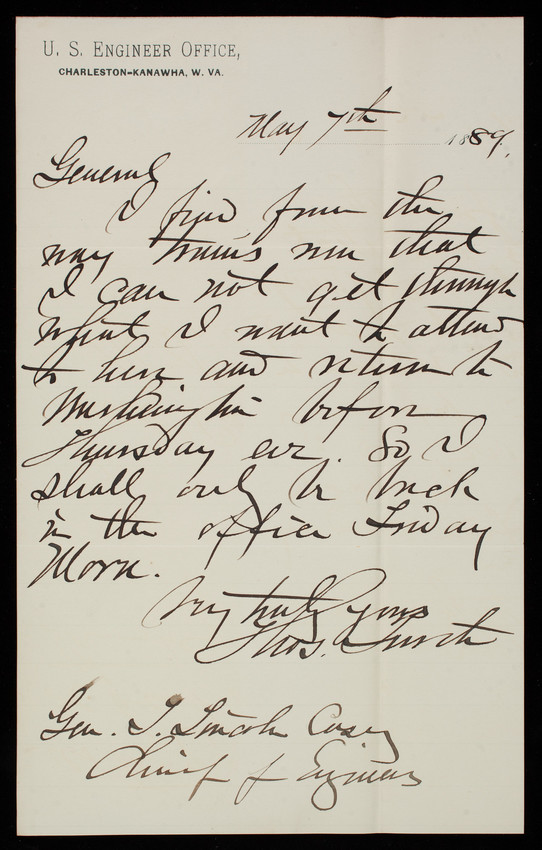 U. S. ENGINEER OFFICE,
CHARLESTON-KANAWHA, W. VA.
May 7th 1889.
General
I find from the
way trains run that
I can not get through
what I want to attend
to here and return to
Washington before
Thursday eve. So I
shall only be back
in the office Friday
Morn.
Very truly yours
Thos.
Gen. T. Lincoln Casey
Chief of Engineers